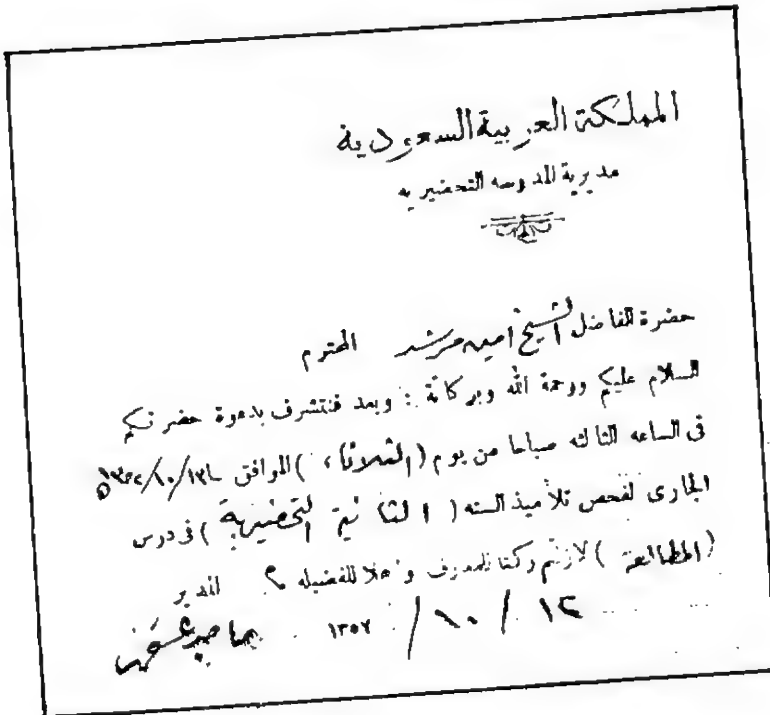 المملكة العربية السعودية
مديرية المدرسه التحضيريه
حضرة الفاضل الشيخ امين مرشد المحترم
السلام عليكم ورحمة الله وبركاته : وبعد فنتشرف بدعوة حضرتكم
فى الساعه الثالثه صباحا من يوم (الثلاثاء) الموافق
الجارى لفحص تلاميذ السنه ( الثانية التحضيرية ) فى درس
(المطالعة ) لازلتم ركنا للمعارف وأهلا للفضيله المدير
١٢ / ١٠ / ١٣٥٧